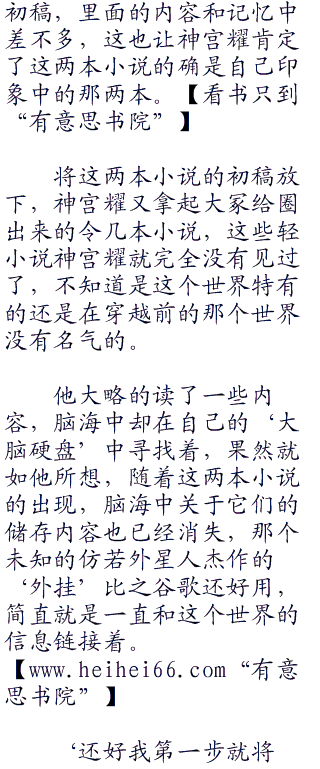 初稿，里面的内容和记忆中
差不多，这也让神宫耀肯定
了这两本小说的确是自己印
象中的那两本。【看书只到
“有意思书院”】
将这两本小说的初稿放
下，神宫耀又拿起大冢给圈
出来的令几本小说，这些轻
小说神宫耀就完全没有见过
了，不知道是这个世界特有
的还是在穿越前的那个世界
没有名气的。
他大略的读了一些内
容，脑海中却在自己的‘大
脑硬盘’中寻找着，果然就
如他所想，随着这两本小说
的出现，脑海中关于它们的
储存内容也已经消失，那个
未知的仿若外星人杰作的
‘外挂’比之谷歌还好用，
简直就是一直和这个世界的
信息链接着。
【www.heihei66.com“有意
思书院”】
‘还好我第一步就将